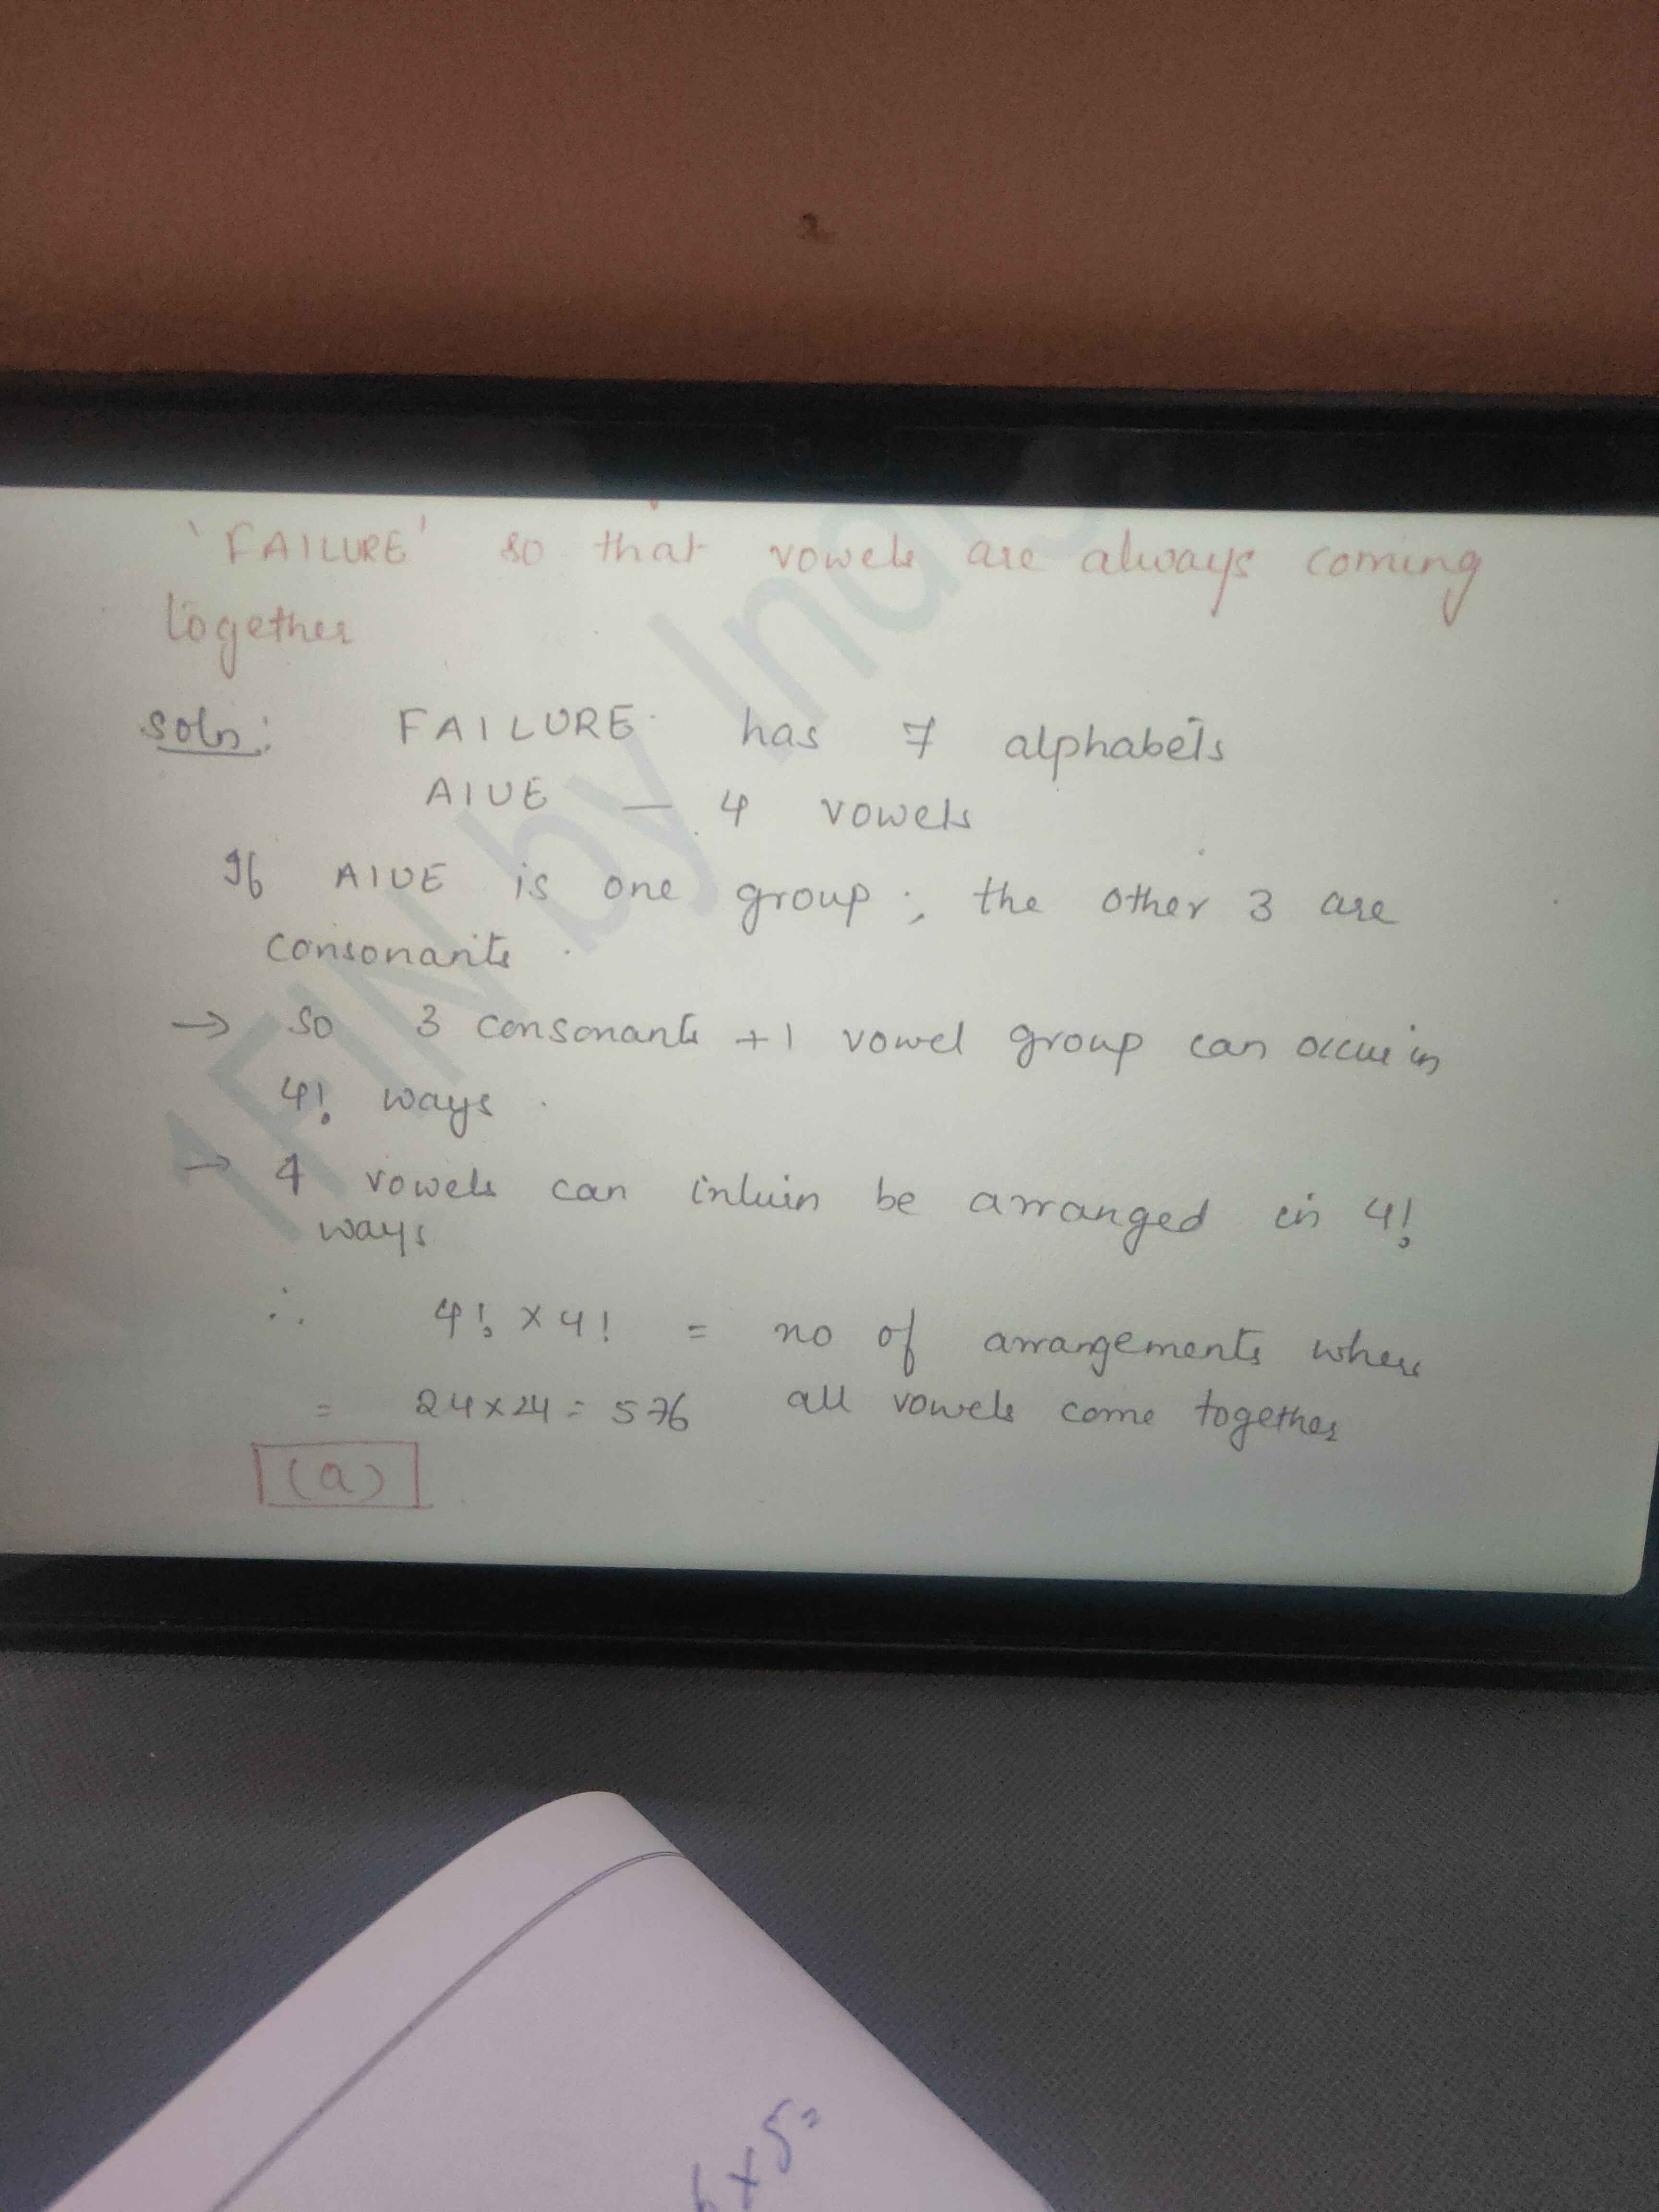 'FAILURE' so that vowels are always coming
together
Soln: FAILURE has 7 alphabets
AIUE — 4 vowels
If AIUE is one group; the other 3 are
consonants.
→ so 3 consonants +1 vowel group can occur in
4! ways.
→ 4 vowels can inturn be arranged in 4!
ways
∴ 4! × 4! = no of arrangements where
= 24×24 = 576 all vowels come together
(a)
1FIN by
6×5=